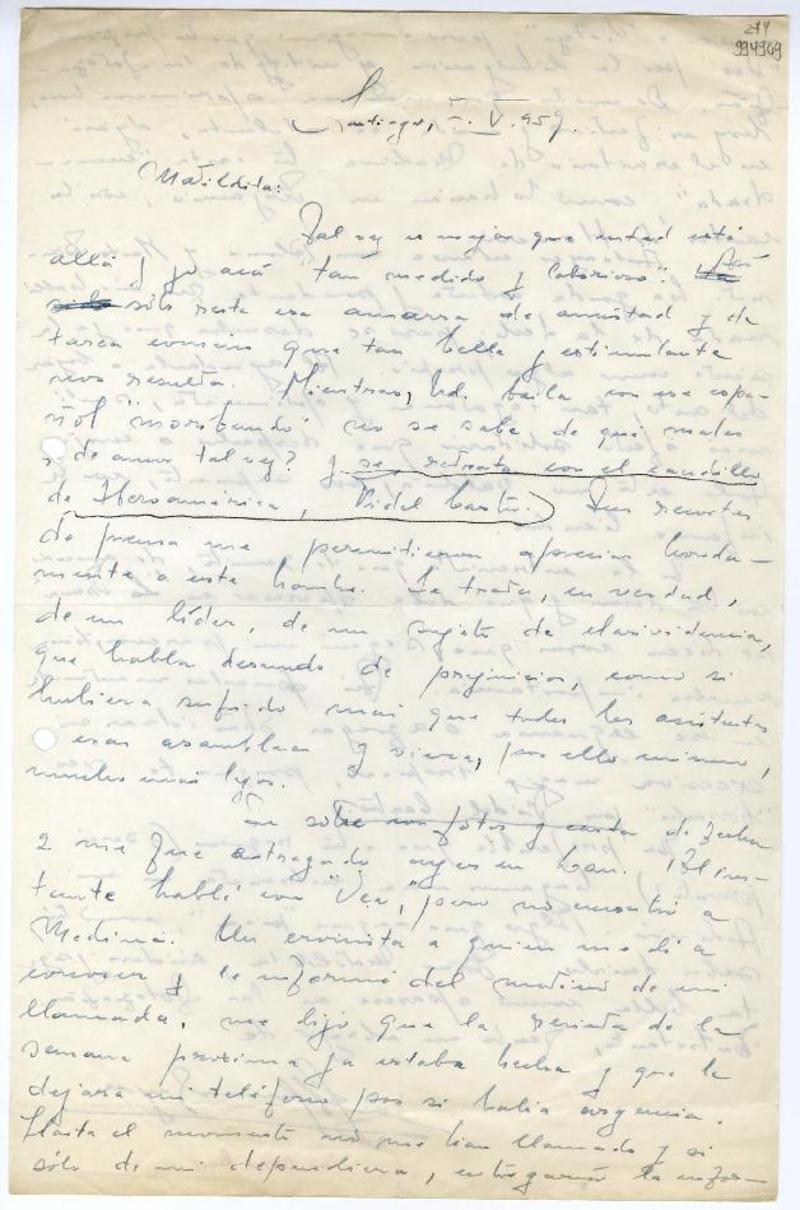 274
994909
Santiago, V. 959.
Matildita:
Tal vez es mejor que usted esté
allá y yo acá "tan medido y laborioso". Así
sólo resta esa amarra de amistad y de
tarea común que tan bella y estimulante
nos resulta. Mientras, Ud. baila con ese espa-
ñol "moribundo" no se sabe de qué males
¿de amor tal vez? y se retrata con el caudillo
de Iberoamérica, Fidel Castro.) Sus recortes
de prensa me permitieron apreciar honda-
mente a este hombre. Se trata, en verdad,
de un líder, de un sujeto de clarividencia,
que habla desnudo de prejuicios, como si
hubiera sufrido más que todos los asistentes
a esas asambleas y viera, por ello mismo,
mucho más lejos.
Su sobre con fotos y carta de fecha
2 me fue entregado ayer en Lan. Al ins-
tante hablé con "Vea", pero no encontré a
Medina. Un cronista a quien me di a
conocer y le informé del motivo de mi
llamada, me dijo que la revista de la
semana próxima ya estaba hecha y que le
dejara mi teléfono por si había urgencia.
Hasta el momento no me han llamado y si
sólo de mí dependiera, entregaría la infor-